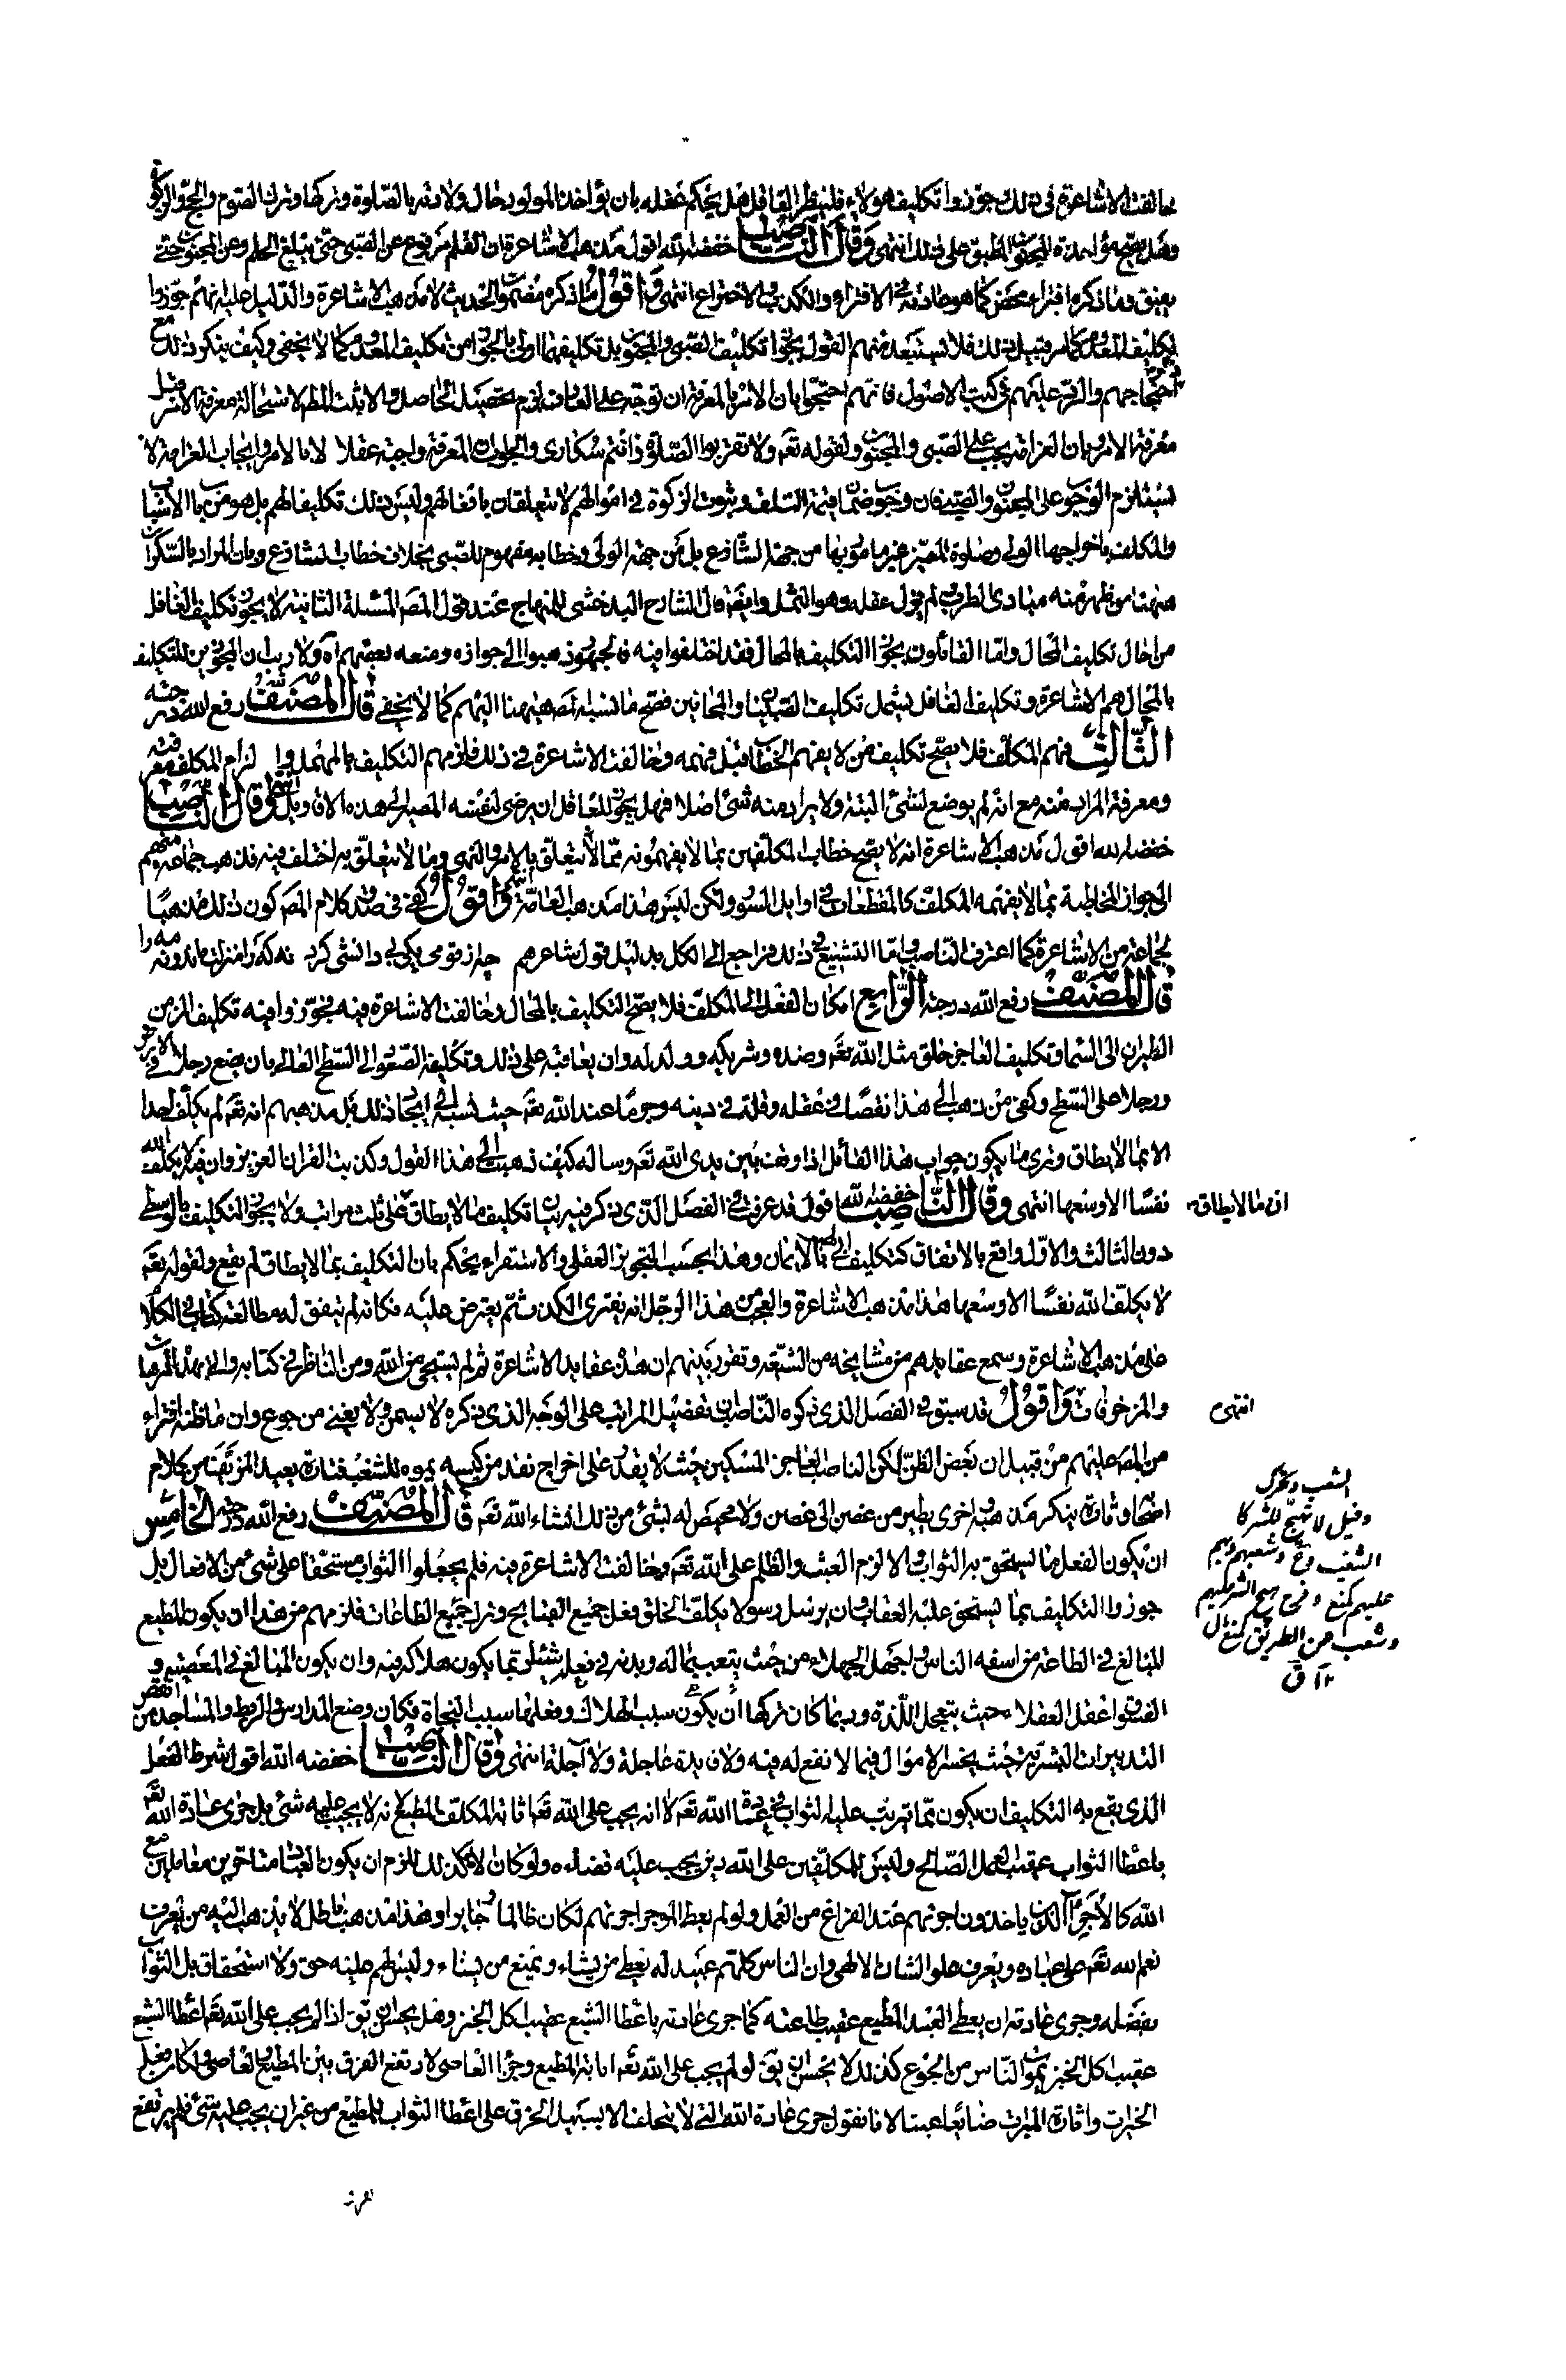 خالفت الاشاعرة في ذلك جوزوا تكليف هؤلاء فلينظر العاقل هل يحكم عقله بان يؤاخذ المولود حال ولادته بالصلوة وتركها وترك الصوم والحج والزكوة
وهل يصح مؤاخذة المجنون المطبق على ذلك انتهى وقال الناصب خفضه الله اقول مذهب الاشاعرة ان القلم مرفوع عن الصبي حتى يبلغ الحلم وعن المجنون حتى
يفيق وما ذكره افتراء محض كما هو عادته في الافتراء والكذب والاختراع انتهى واقول ما ذكره مضمون الحديث لا مذهب الاشاعرة والدليل عليه انهم جوزوا
تكليف المعدوم كما مر قبيل ذلك فلا يستبعد منهم القول بجواز تكليف الصبي والمجنون بل تكليفهما اولى بالجواز من تكليف المعدوم كما لا يخفى وكيف ينكر ذلك مع
احتجاجهم والرد عليهم في كتب الاصول فانهم احتجوا بان الامر بالمعرفة ان توجه على العارف لزم تحصيل الحاصل والا ثبت المط لاستحالة معرفة الامر قبل
معرفة الآمر وبان الغرامة يجب على الصبي والمجنون ولقوله تعه ولا تقربوا الصلوة وانتم سكارى والجواب ان المعرفة واجبة عقلا لا بالامر وايجاب الغرامة لا
يستلزم الوجوب على المجنون والصبي فان وجوب ضمان قيمة التلف وثبوت الزكوة في اموالهم لا يتعلقان بافعالهم وليس ذلك تكليفا لهم بل هو من باب الاسباب
والمكلف باخراجها الولي وصلوة المميز غير مامور بها من جهة الشارع بل من جهة الولي وخطابه مفهوم للصبي بخلاف خطاب الشارع وبان المراد بالسكران
ههنا من ظهر منه مبادى الطرب ولم يزل عقله وهو الثمل وايضا قال الشارح البدخشي للمنهاج عند قول المصه المسئلة الثانية لا يجوز تكليف الغافل
من احال تكليف المحال واما القائلون بجواز التكليف بالمحال فقد اختلفوا فيه فالجمهور ذهبوا الى جوازه ومنعه بعضهم اه ولا ريب ان المجوزين للتكليف
بالمحال هم الاشاعرة وتكليف الغافل يشمل تكليف الصبيان والمجانين فصح ما نسبه المصه ههنا اليهم كما لا يخفى قال المصنف رفع الله درجته
الثالث فهم المكلف فلا يصح تكليف من لا يفهم الخطاب قبل فهمه وخالفت الاشاعرة في ذلك فلزمهم التكليف بالمهمل والزام المكلف معرفته
ومعرفة المراد منه مع انه لم يوضع لشئ البتة ولا يراد منه شئ اصلا فهل يجوز للعاقل ان يرضى لنفسه المصير الى هذه الاقاويل انتهى وقال الناصب
خفضه الله اقول مذهب الاشاعرة انه لا يصح خطاب المكلفين بما لا يفهمونه مما يتعلق بالامر والنهي وما لا يتعلق به اختلف فيه فذهب جماعة منهم
الى جواز المخاطبة بما لا يفهمه المكلف كالمقطعات في اوايل السور ولكن ليس هذا مذهب العامة انتهى واقول كفى في صدق كلام المصه كون ذلك مذهبا
لجماعة من الاشاعرة كما اعترف الناصب واما التشنيع في ذلك فراجع الى الكل بدليل قول شاعرهم چو از قومى يكى بى دانشى كرد نه كه را منزلت ماند نه مه را
قال المصنف رفع الله درجته الرابع امكان الفعل الى المكلف فلا يصح التكليف بالمحال وخالفت الاشاعرة فيه فجوزوا فيه تكليف الزمن
الطيران الى السماء وتكليف العاجز خلق مثل الله تعه وضده وشريكه وولد له وان يعاقبه على ذلك وتكليف الصعود الى السطح العالى بان يضع رجلا في الارض
ورجلا على السطح وكفى من ذهب الى هذا نقصا في عقله وقلة في دينه وجرما عند الله تعه حيث نسبه الى ايجاد ذلك بل مذهبهم انه تعه لم يكلف احدا
الا بما لا يطاق وترى ما يكون جواب هذا القائل اذا وقف بين يدى الله تعه وساله كيف ذهبت الى هذا القول وكذبت القران العزيز وان فيه لا يكلف الله
نفسا الا وسعها انتهى وقال الناصب خفضه الله اقول قد عرفت في الفصل الذى ذكر فيه بيان تكليف ما لا يطاق انه ما لا يطاق على ثلث مراتب ولا يجوز التكليف بالوسطى
دون الثالث والاول واقع بالاتفاق كتكليف ابى لهب بالايمان وهذا بحسب التجويز العقلى والاستقراء يحكم بان التكليف بما لا يطاق لم يقع ولقوله تعه
لا يكلف الله نفسا الا وسعها هذا مذهب الاشاعرة والعجب من هذا الرجل انه يفترى الكذب ثم يعترض عليه فكانه لم يتفق له مطالعة كتاب في الكلام
على مذهب الاشاعرة وسمع عقايدهم من مشايخه من الشيعة وتقرر بينهم ان هذه عقايد الاشاعرة ثم لم يستحى من الله ومن الناظر في كتابه واتى بهذه الترهات
والمزخرفات انتهى واقول قد سبق في الفصل الذى ذكره الناصب ان تفصيل المراتب على الوجه الذى ذكره لا يسمن ولا يغنى من جوع وان ما ظنه افتراء
من المصه عليهم من قبيل ان بعض الظن لكن الناصب العاجز المسكين حيث لا يقدر على اخراج نقد من كيسه يموه للشغب فتارة يعيد المزيف من كلام
اصحابه وتارة ينكر مذهبه واخرى يطير من غصن الى غصن ولا محيص له لشئ من ذلك انشاء الله تعه قال المصنف رفع الله درجته الخامس
ان يكون الفعل مما يستحق به الثواب والا لزم العبث والظلم على الله تعه وخالفت الاشاعرة فيه فلم يجعلوا الثواب مستحقا على شئ من الافعال بل
جوزوا التكليف بما يستحق عليه العقاب وان يرسل رسولا يكلف الخلق فعل جميع القبايح وترك جميع الطاعات فلزمهم من هذا ان يكون المطيع
المبالغ في الطاعة من اسفه الناس واجهل الجهلاء من حيث يتعب بماله وبدنه في فعل شئ ربما يكون هلاكه فيه وان يكون المبالغ في المعصية و
الفسوق اعقل العقلاء حيث يتعجل اللذة وربما كان تركها سبب الهلاك وفعلها سبب النجاة فكان وضع المدارس والربط والمساجد من نقص
التدبيرات البشرية حيث يخسر الاموال فيما لا نفع له فيه ولا فايدة عاجلة ولا آجلة انتهى وقال الناصب خفضه الله اقول شرط الفعل
الذى يقع به التكليف ان يكون مما يترتب عليه الثواب في عادة الله تعه لا انه يجب على الله تعه اثابة المكلف المطيع فانه لا يجب عليه شئ بل جرى عادة الله تعه
باعطاء الثواب عقيب العمل الصالح وليس للمكلفين على الله دين يجب عليه قضاءه ولو كان الامر كذلك للزم ان يكون العباد متاجرين معاملين مع
الله كالاجراء الذين ياخذون اجرتهم عند الفراغ من العمل ولو لم يعط الموجر اجرتهم لكان ظالما جايرا وهذا مذهب باطل لا يذهب اليه من يعرف
نعم الله تعه على عباده ويعرف علو الشان الالهى وان الناس كلهم عبيد له يعطى من يشاء ويمنع من يشاء وليس لهم عليه حق ولا استحقاق بل الثواب
بفضله وجرى عادته ان يعطى العبد المطيع عقيب طاعته كما جرى عادته باعطاء الشبع عقيب اكل الخبز وهل يحسن ان يق اذا لم يجب على الله تعه اعطاء الشبع
عقيب اكل الخبز يموت الناس من الجوع كذلك لا يحسن ان يق لو لم يجب على الله تعه اثابة المطيع وجزاء العاصى لارتفع الفرق بين المطيع والعاصى ولكان فعل
الخيرات واقامة المبرات ضايعا عبثا لانا نقول جرى عادة الله التى لا يتخلف الا بسبيل الخرق على اعطاء الثواب للمطيع من غير ان يجب عليه شئ فلم يرتفع
انتهى
الشغب ويحرك
وقيل لا تهييج الشر كا
عليهم كمنع وفرح هيج الشر عليهم